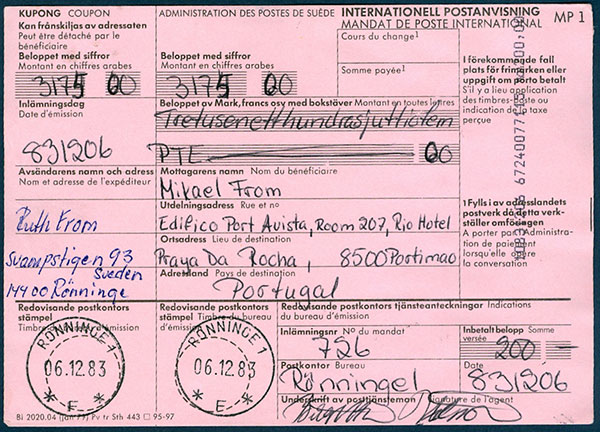 KUPONG COUPON
Kan frånskiljas av adressaten
Peut être détaché par le
bénéficiaire
Beloppet med siffror
Montant en chiffres arabes
3175 00
Inlämningsdag
Date d'émission
831206
Avsändarens namn och adress
Nom et adresse de l'expéditeur
Ruth From
Svampstigen 93
Sweden
14400 Rönninge
Redovisande postkontors
stämpel
Timbre du bureau d'émission
RÖNNINGE 1
06.12.83
* E *
Bl 2020.04 (jan 77) Pv tr Sth 443 95-97
ADMINISTRATION DES POSTES DE SUÈDE
Beloppet med siffror
Montant en chiffres arabes
3175 00
INTERNATIONELL POSTANVISNING
MANDAT DE POSTE INTERNATIONAL
MP 1
Cours du change¹
Somme payée¹
Beloppet av Mark, francs osv med bokstäver Montant en toutes lettres
Tretusenetthundrasjuttiofem
PTE 00
Mottagarens namn Nom du bénéficiaire
Mikael From
Utdelningsadress Rue et no
Edifico Port Avista, Room 207, Rio Hotel
Ortsadress Lieu de destination
Praya Da Rocha, 8500 Portimao
Adressland Pays de destination
Portugal
I förekommande fall
plats för frimärken eller
uppgift om porto betalt
S'il y a lieu application
des timbres-poste ou
indication de la taxe
perçue
672400774
1 Fylls i av adresslandets
postverk då detta verk-
ställer omföringen
A porter par l'Administra-
tion de paiement
lorsqu'elle opère
la conversion
Redovisande postkontors
stämpel
Timbre du bureau
d'émission
RÖNNINGE 1
06.12.83
* E *
Redovisande postkontors tjänsteanteckningar Indications
du bureau d'émission
Inlämningsnr Nº du mandat
726
Inbetalt belopp Somme
versée
200 —
Postkontor Bureau
Rönninge 1
Date
831206
Underskrift av posttjänsteman Signature de l'agent